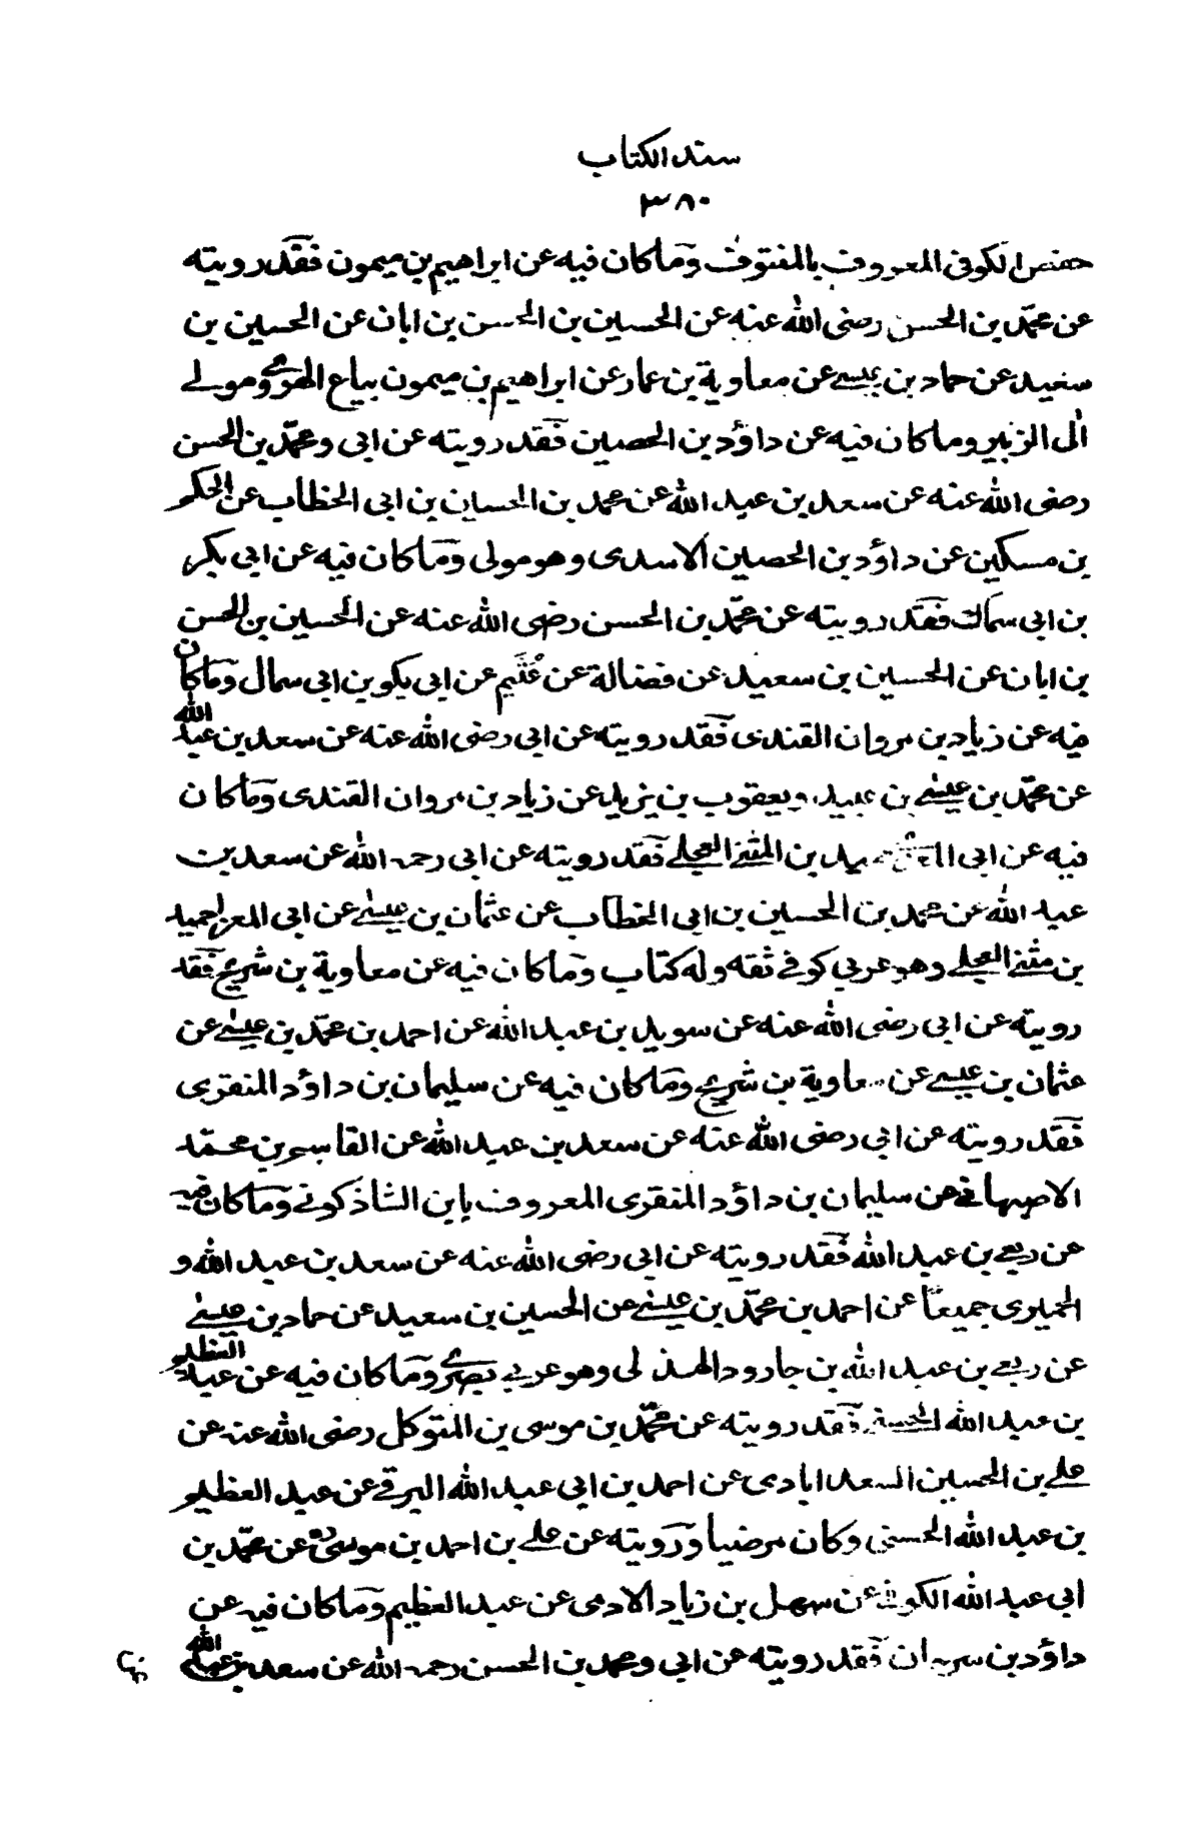 سند الكتاب
٣٨٠
حفص الكوفى المعروف بالمفتوف وما كان فيه عن ابراهيم بن ميمون فقد رويته
عن محمّد بن الحسن رضى الله عنه عن الحسين بن الحسن بن ابان عن الحسين بن
سعيد عن حماد بن عيسى عن معاوية بن عمار عن ابراهيم بن ميمون بياع الهروى ومولى
اٰل الزبير وما كان فيه عن داؤد بن الحصين فقد رويته عن ابى ومحمّد بن الحسن
رضى الله عنه عن سعد بن عبد الله عن محمد بن الحسين بن ابى الخطاب عن الحكم
بن مسكين عن داؤد بن الحصين الاسدى وهو مولى وما كان فيه عن ابى بكر
بن ابى سماك فقد رويته عن محمّد بن الحسن رضى الله عنه عن الحسين بن الحسن
بن ابان عن الحسين بن سعيد عن فضالة عن عُثَيم عن ابى بكر بن ابى سمال وما كان
فيه عن زياد بن مروان القندى فقد رويته عن ابى رضى الله عنه عن سعد بن عبد الله
عن محمّد بن عيسٰى بن عبيد ويعقوب بن يزيد عن زياد بن مروان القندى وما كان
فيه عن ابى حميد بن المثنٰى العجلى فقد رويته عن ابى رحمه الله عن سعد بن
عبد الله عن محمد بن الحسين بن ابى الخطاب عن عثمان بن عيسٰى عن ابى المعزا حميد
بن مثنٰى العجلى وهو عربي كوفى ثقه وله كتاب وما كان فيه عن معاوية بن شريح فقد
رويته عن ابى رضى الله عنه عن سويد بن عبد الله عن احمد بن محمّد بن عيسٰى عن
عثمان بن عيسى عن معاوية بن شريح وما كان فيه عن سليمان بن داؤد المنقرى
فقد رويته عن ابى رضى الله عنه عن سعد بن عبد الله عن القاسم بن محمّد
الاصبهانى عن سليمان بن داؤد المنقرى المعروف بابن الشاذكونى وما كان فيه
عن ربعى بن عبد الله فقد رويته عن ابى رضى الله عنه عن سعد بن عبد الله و
الحميرى جميعًا عن احمد بن محمّد بن عيسٰى عن الحسين بن سعيد عن حماد بن عيسٰى
عن ربعى بن عبد الله بن جارود الهذلى وهو عربي بصرى وما كان فيه عن عبد العظيم
بن عبد الله الحسنى فقد رويته عن محمّد بن موسى بن المتوكل رضى الله عنه عن
على بن الحسين السعدابادى عن احمد بن ابى عبد الله البرقى عن عبد العظيم
بن عبد الله الحسنى وكان مرضيا ورويته عن على بن احمد بن موسىٰ عن محمّد بن
ابى عبد الله الكوفى عن سهل بن زياد الادمى عن عبد العظيم وما كان فيه عن
داؤد بن سرحان فقد رويته عن ابى ومحمد بن الحسن رحمه الله عن سعد بن عبد الله